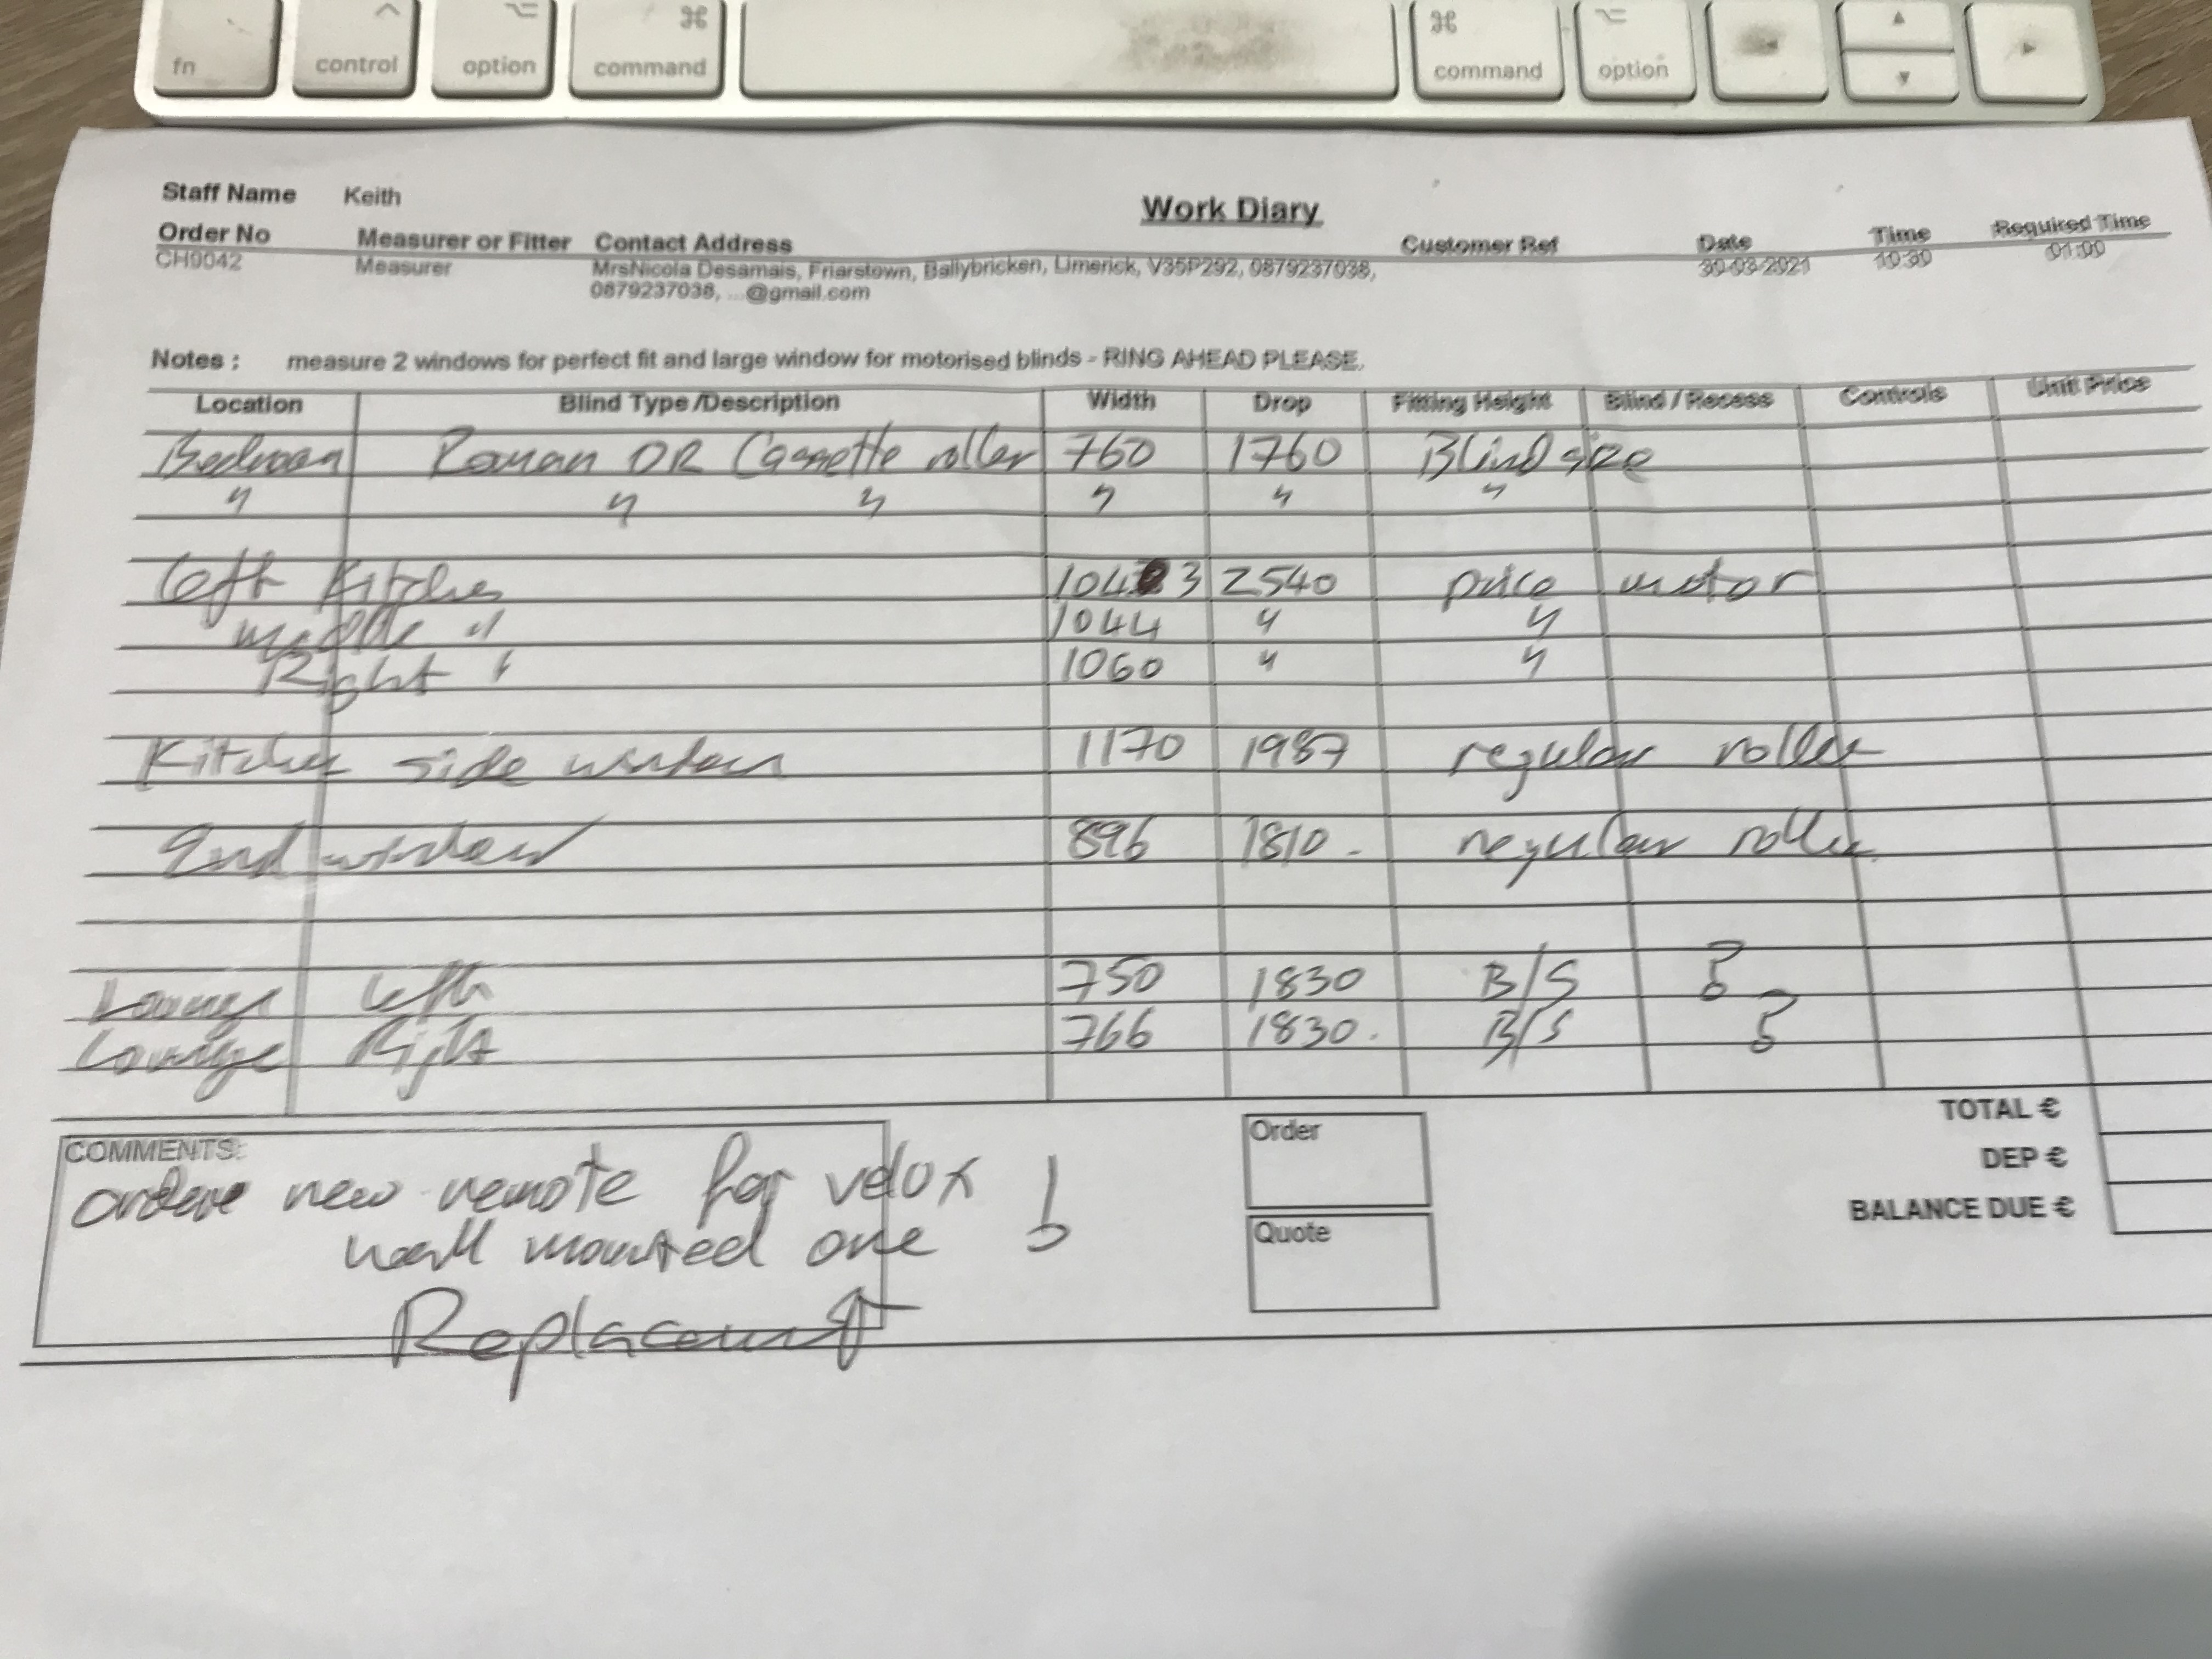 fn control option command command option
Staff Name Keith
Work Diary
Order No Measurer or Fitter Contact Address Customer Ref Date Time Required Time
CH9042 Measurer MrsNicola Desamais, Friarstown, Ballybricken, Limerick, V35P292, 0879237038, 30-03-2021 10:30 01:00
0879237038, ...@gmail.com
Notes : measure 2 windows for perfect fit and large window for motorised blinds - RING AHEAD PLEASE.
Location Blind Type /Description Width Drop Fitting Height Blind / Recess Controls Unit Price
Bedroom Roman OR Cassette roller 760 1760 Blind size
" " " " " "
Left Kitchen 1043 2540 price motor
middle " 1044 " "
Right " 1060 " "
Kitchen side window 1170 1987 regular roller
2nd window 896 1810. regular roller
Lounge Left 750 1830 B/S ?
Lounge Right 766 1830. B/S ?
TOTAL €
COMMENTS: Order
DEP €
order new remote for velox !
BALANCE DUE €
wall mounted one Quote
Replacement